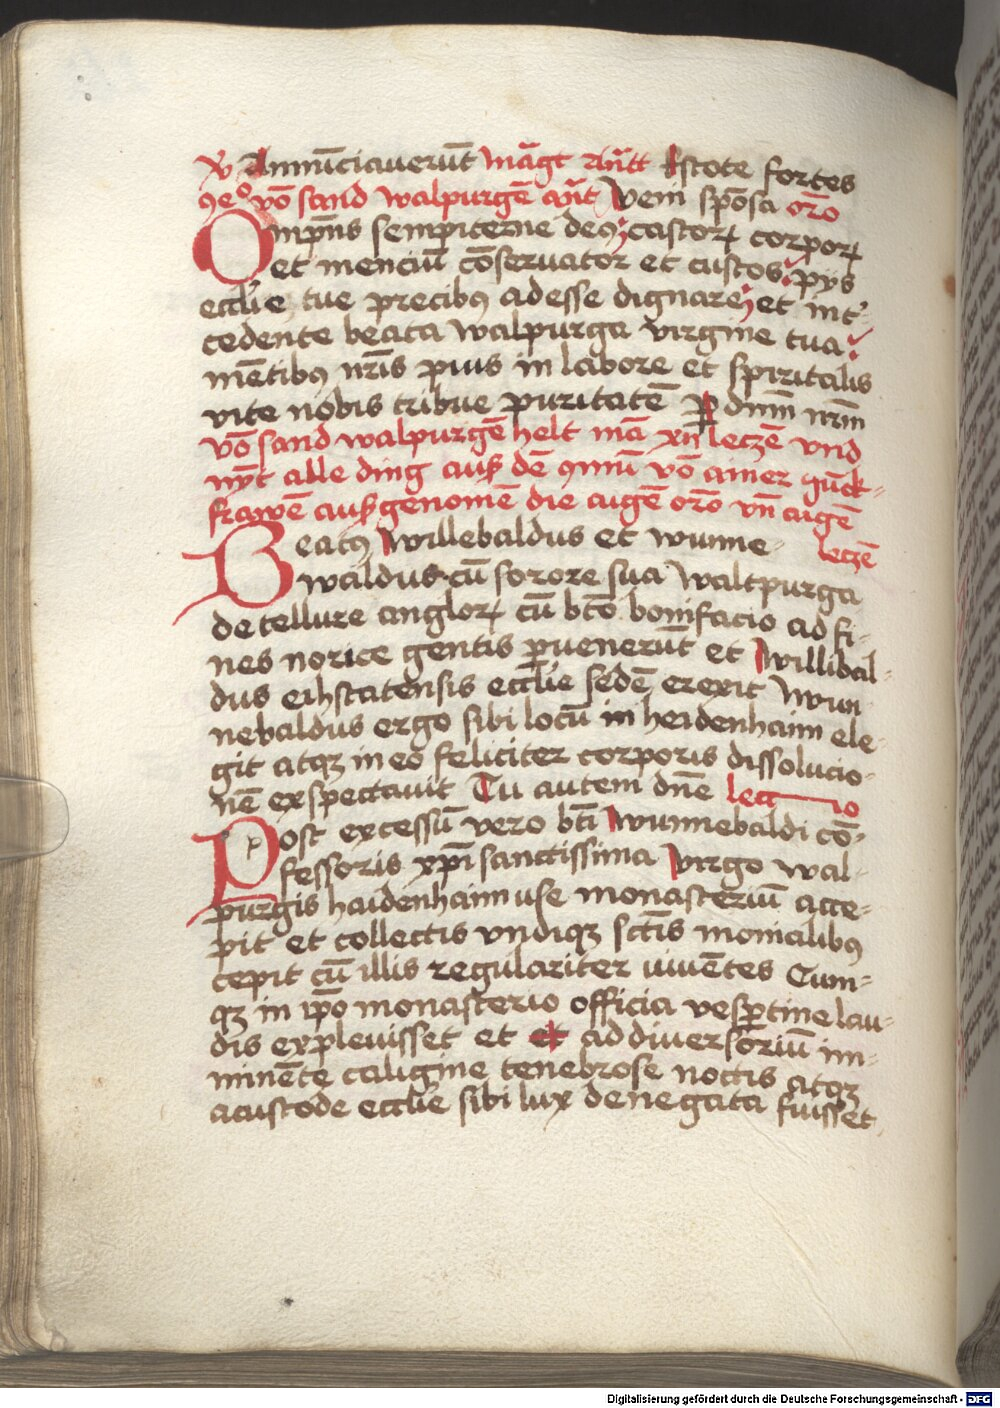 V̄ Annūciaverūt māgt Ant̄t Estote fortes
9e⁰ vō sand walpurgē an̄t Veni spōsa or̄o
Omp̄ns sempiterne de9 castoꝝ corpoꝝ
et menciū cōservator et custos pys
eccl̄ie tue precib9 adesse dignare et int̓-
cedente beata walpurga virgine tua
mētib9 nr̄is pius in labore et spiritalis
vite nobis tribue puritatē ꝑ dnm̄ nrm̄
vō sand walpurgē helt mā xii leczē vnd
nȳt alle ding auß dē 9mū vō ainer Juck-
frawē außgenomē die aigē or̄o vn̄ aigē
leczē
Beat9 willebaldus et wunne-
waldus cū sorore sua waltpurga
de tellure angloꝝ cū bt̄o bonifacio ad fi-
nes norice gentis ꝑvenerūt et willibal-
dus eihstatensis eccl̄ie sedē erexit wun-
nebaldus ergo sibi locū in heidenhaim ele-
git atqꝫ in eo feliciter corporis dissolucio-
nē exspectavit Tu autem dn̄e lectio
Post excessū vero bt̄i wunnebaldi cō-
fessoris xp̄i sanctissima virgo wal-
purgis haidenhaimuse monasteriū acce-
pit et collectis vndiqꝫ sct̄is monialib9
cepit cū illis regulariter uiuētes Cum-
qꝫ in ip̄o monasterio officia vesꝑtine lau-
dis explevisset et et ad diversoriū im-
minēte caligine tenebrose noctis atqꝫ
acustode ecclie sibi lux denegata fuisset
Digitalisierung gefördert durch die Deutsche Forschungsgemeinschaft - DFG